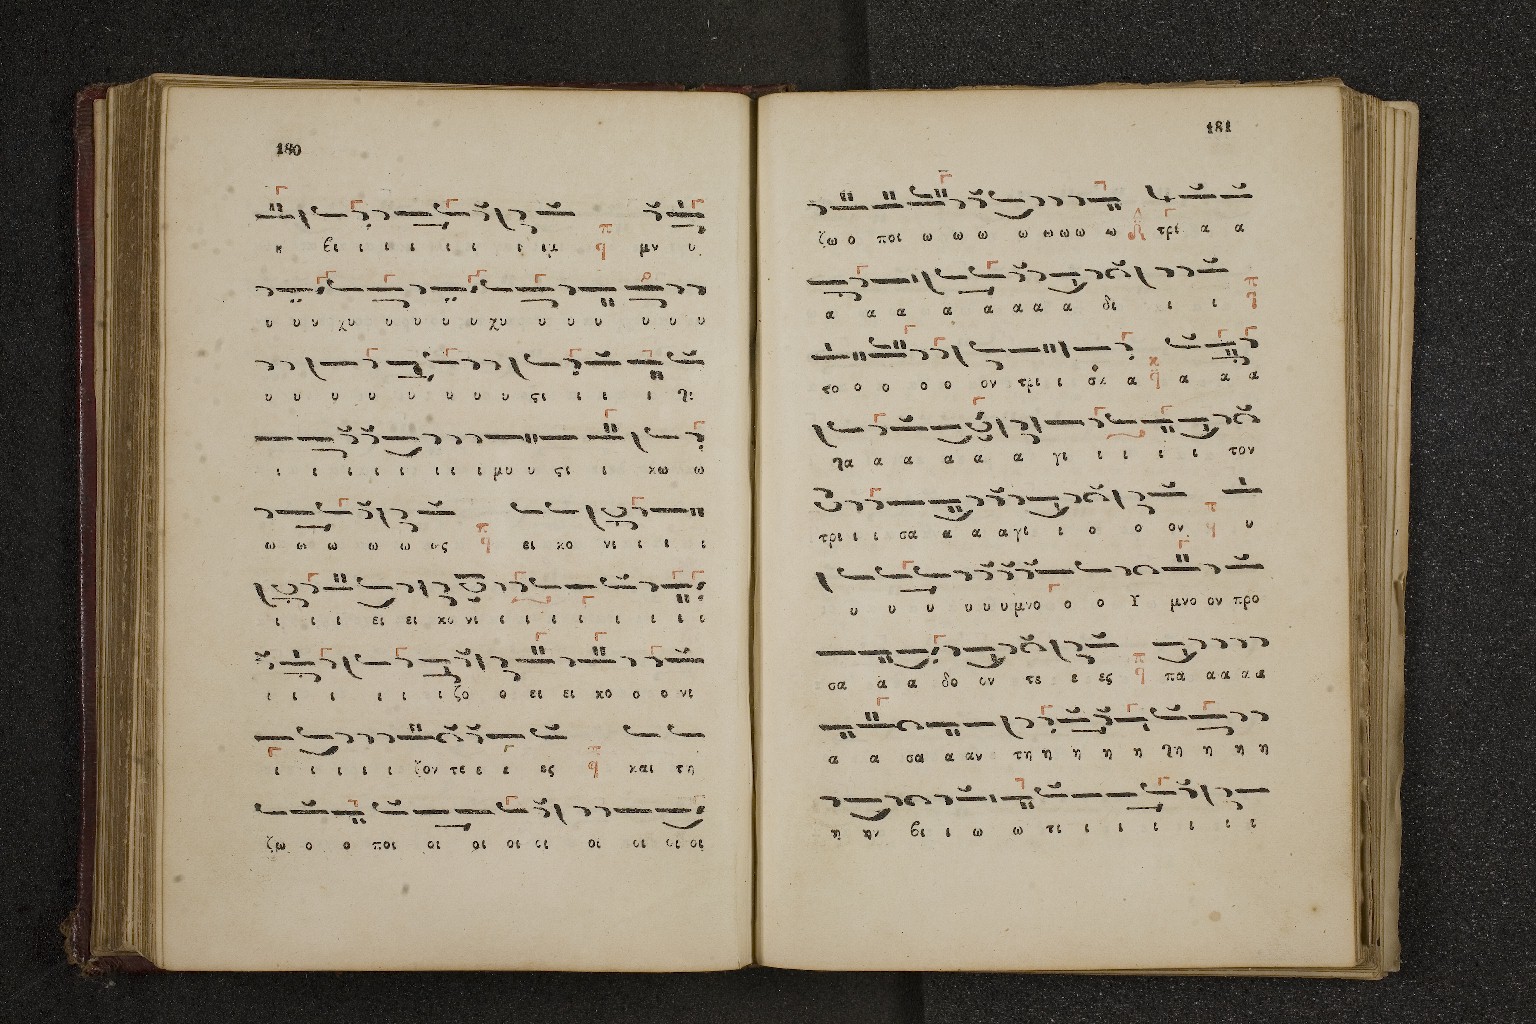 180
κ βι ι ι ι ι ι ι ιμ μν υ
υ υ υ χυ υ υ υ υ χυ υ υ υ υ υ υ
υ υ υ υ υ υ υ υ υ ςι ι ι ι
ι ι ι ι ι ι ι ι μυ υ ςι ι κω ω
ω ω ω ω ω ως ει κο νι ι ι ι
ι ι ι ει ει κο νι ι ι ι ι ι ι ι ι
ι ι ι ι ι ι ιζο ο ει ει κο ο ο νι
ι ι ι ι ι ζον τε ε ε ες και τη
ζω ο ο ποι οι οι οι οι οι οι οι οι
181
ζω ο ποι ω ω ω ω ω ω ω ω τρι α α
α α α α α α α α δι ι ι
το ο ο ο ο ον τρι ι σα α α α α
γα α α α α α α γι ι ι ι ι τον
τρι ι ι σα α α α γι ι ο ο ον υ
υ υ υ υ υ υ μνο ο ο Υ μνο ον προ
σα α α δο ον τε ε ες πα α α α α
α α σα α αν τη η η η η η η η
η ην βι ι ω ω τι ι ι ι ι ι ι